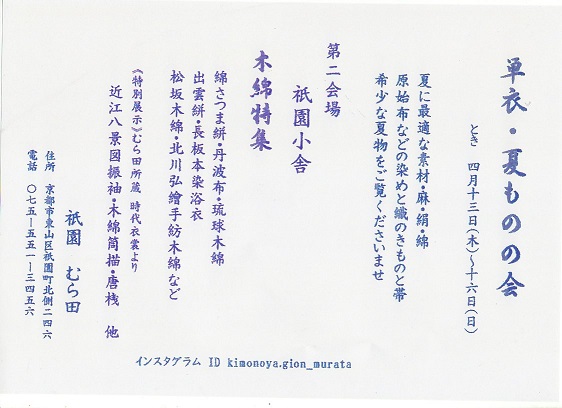 単衣・夏ものの会
とき　四月十三日(木)～十六日(日)
夏に最適な素材・麻・絹・綿
原始布などの染めと織のきものと帯
希少な夏物をご覧くださいませ
第二会場
祇園小舎
木綿特集
綿さつま絣・丹波布・琉球木綿
出雲絣・長板本染浴衣
松坂木綿・北川弘繪手紡木綿など
《特別展示》むら田所蔵 時代衣裳より
近江八景図振袖・木綿筒描・唐桟　他
祇園　むら田
住所　京都市東山区祇園町北側二四六
電話　〇七五ー五五一ー三四五六
インスタグラム ID kimonoya.gion_murata